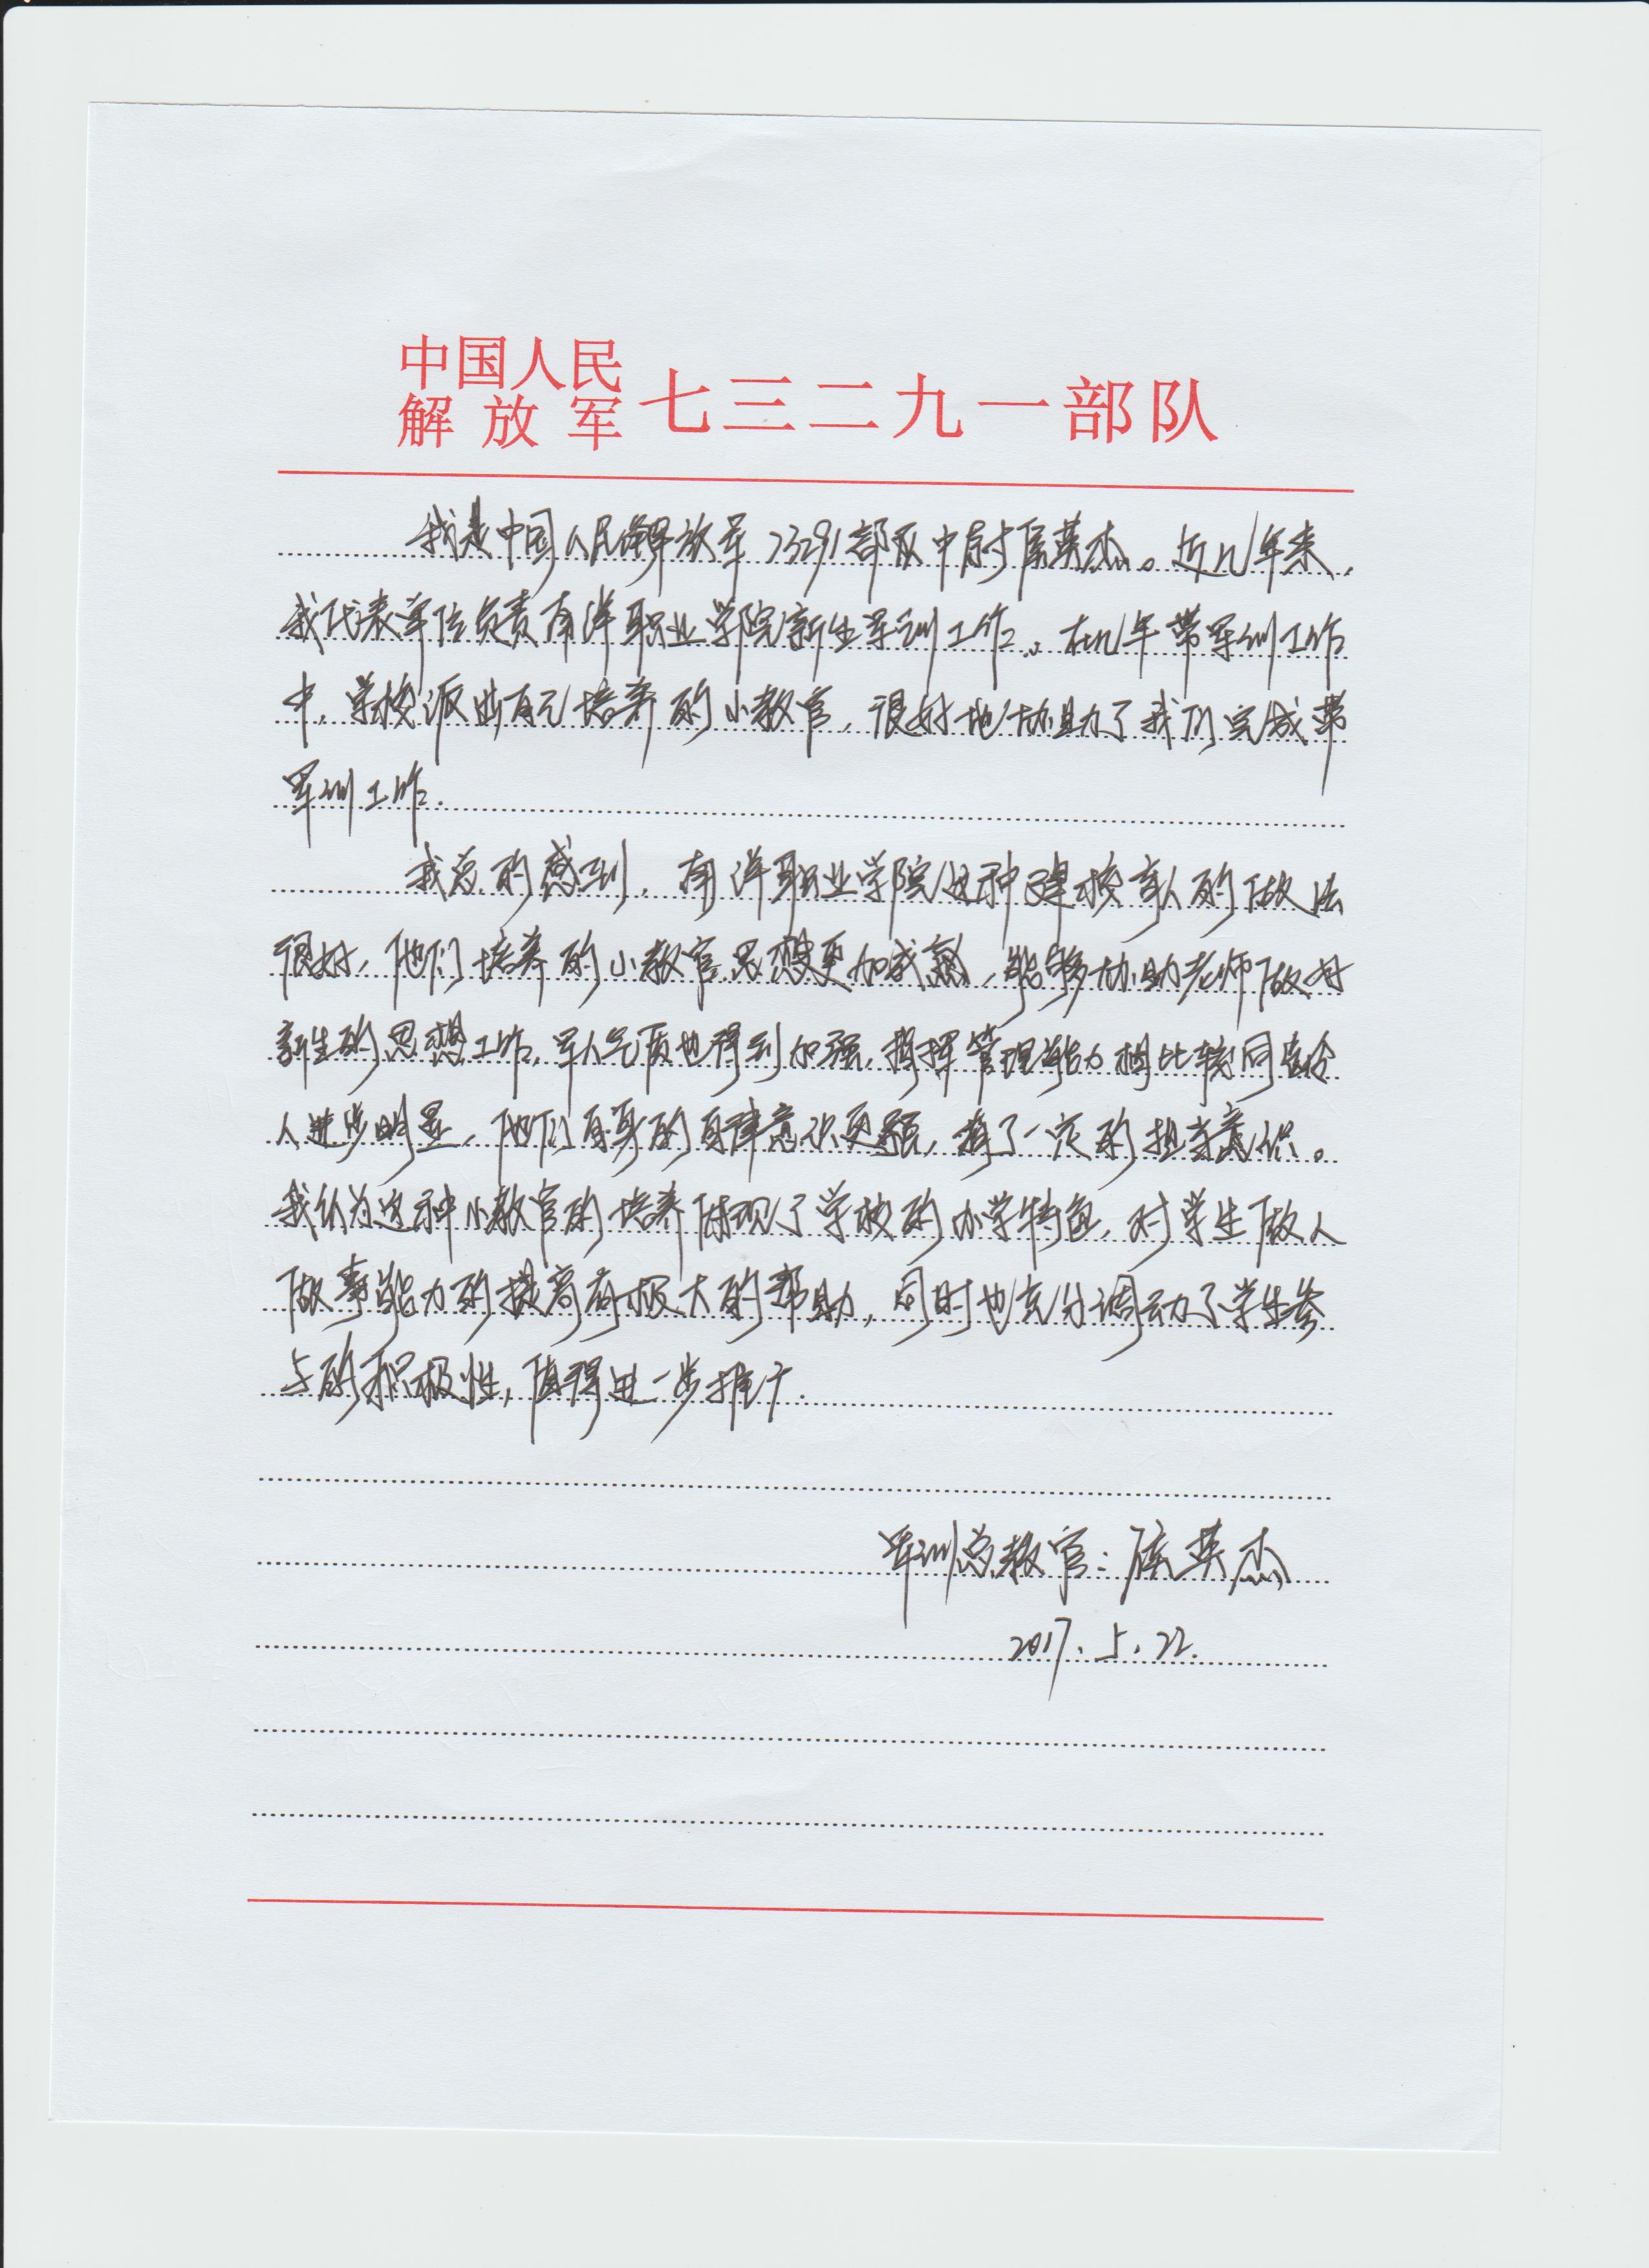 中国人民
解放军 七三二九一部队
我是中国人民解放军73291部队中尉 英杰。近几年来，
我代表单位负责南洋职业学院新生军训工作。在几年带军训工作
中，学校派出自己培养的小教官，很好地协助了我们完成带
军训工作.
我总的感到，南洋职业学院这种建校育人的做法
很好，他们培养的小教官思想更加成熟，能够协助老师做好
新生的思想工作，军人气质也得到加强，指挥管理能力相比较同龄
人进步明显，他们自身的自律意识更强，有了一定的担当意识。
我认为这种小教官的培养体现了学校的办学特色，对学生做人
做事能力的提高有极大的帮助，同时也充分调动了学生参
与的积极性，值得进一步推广.
军训总教官：陈英杰
2017.5.22.